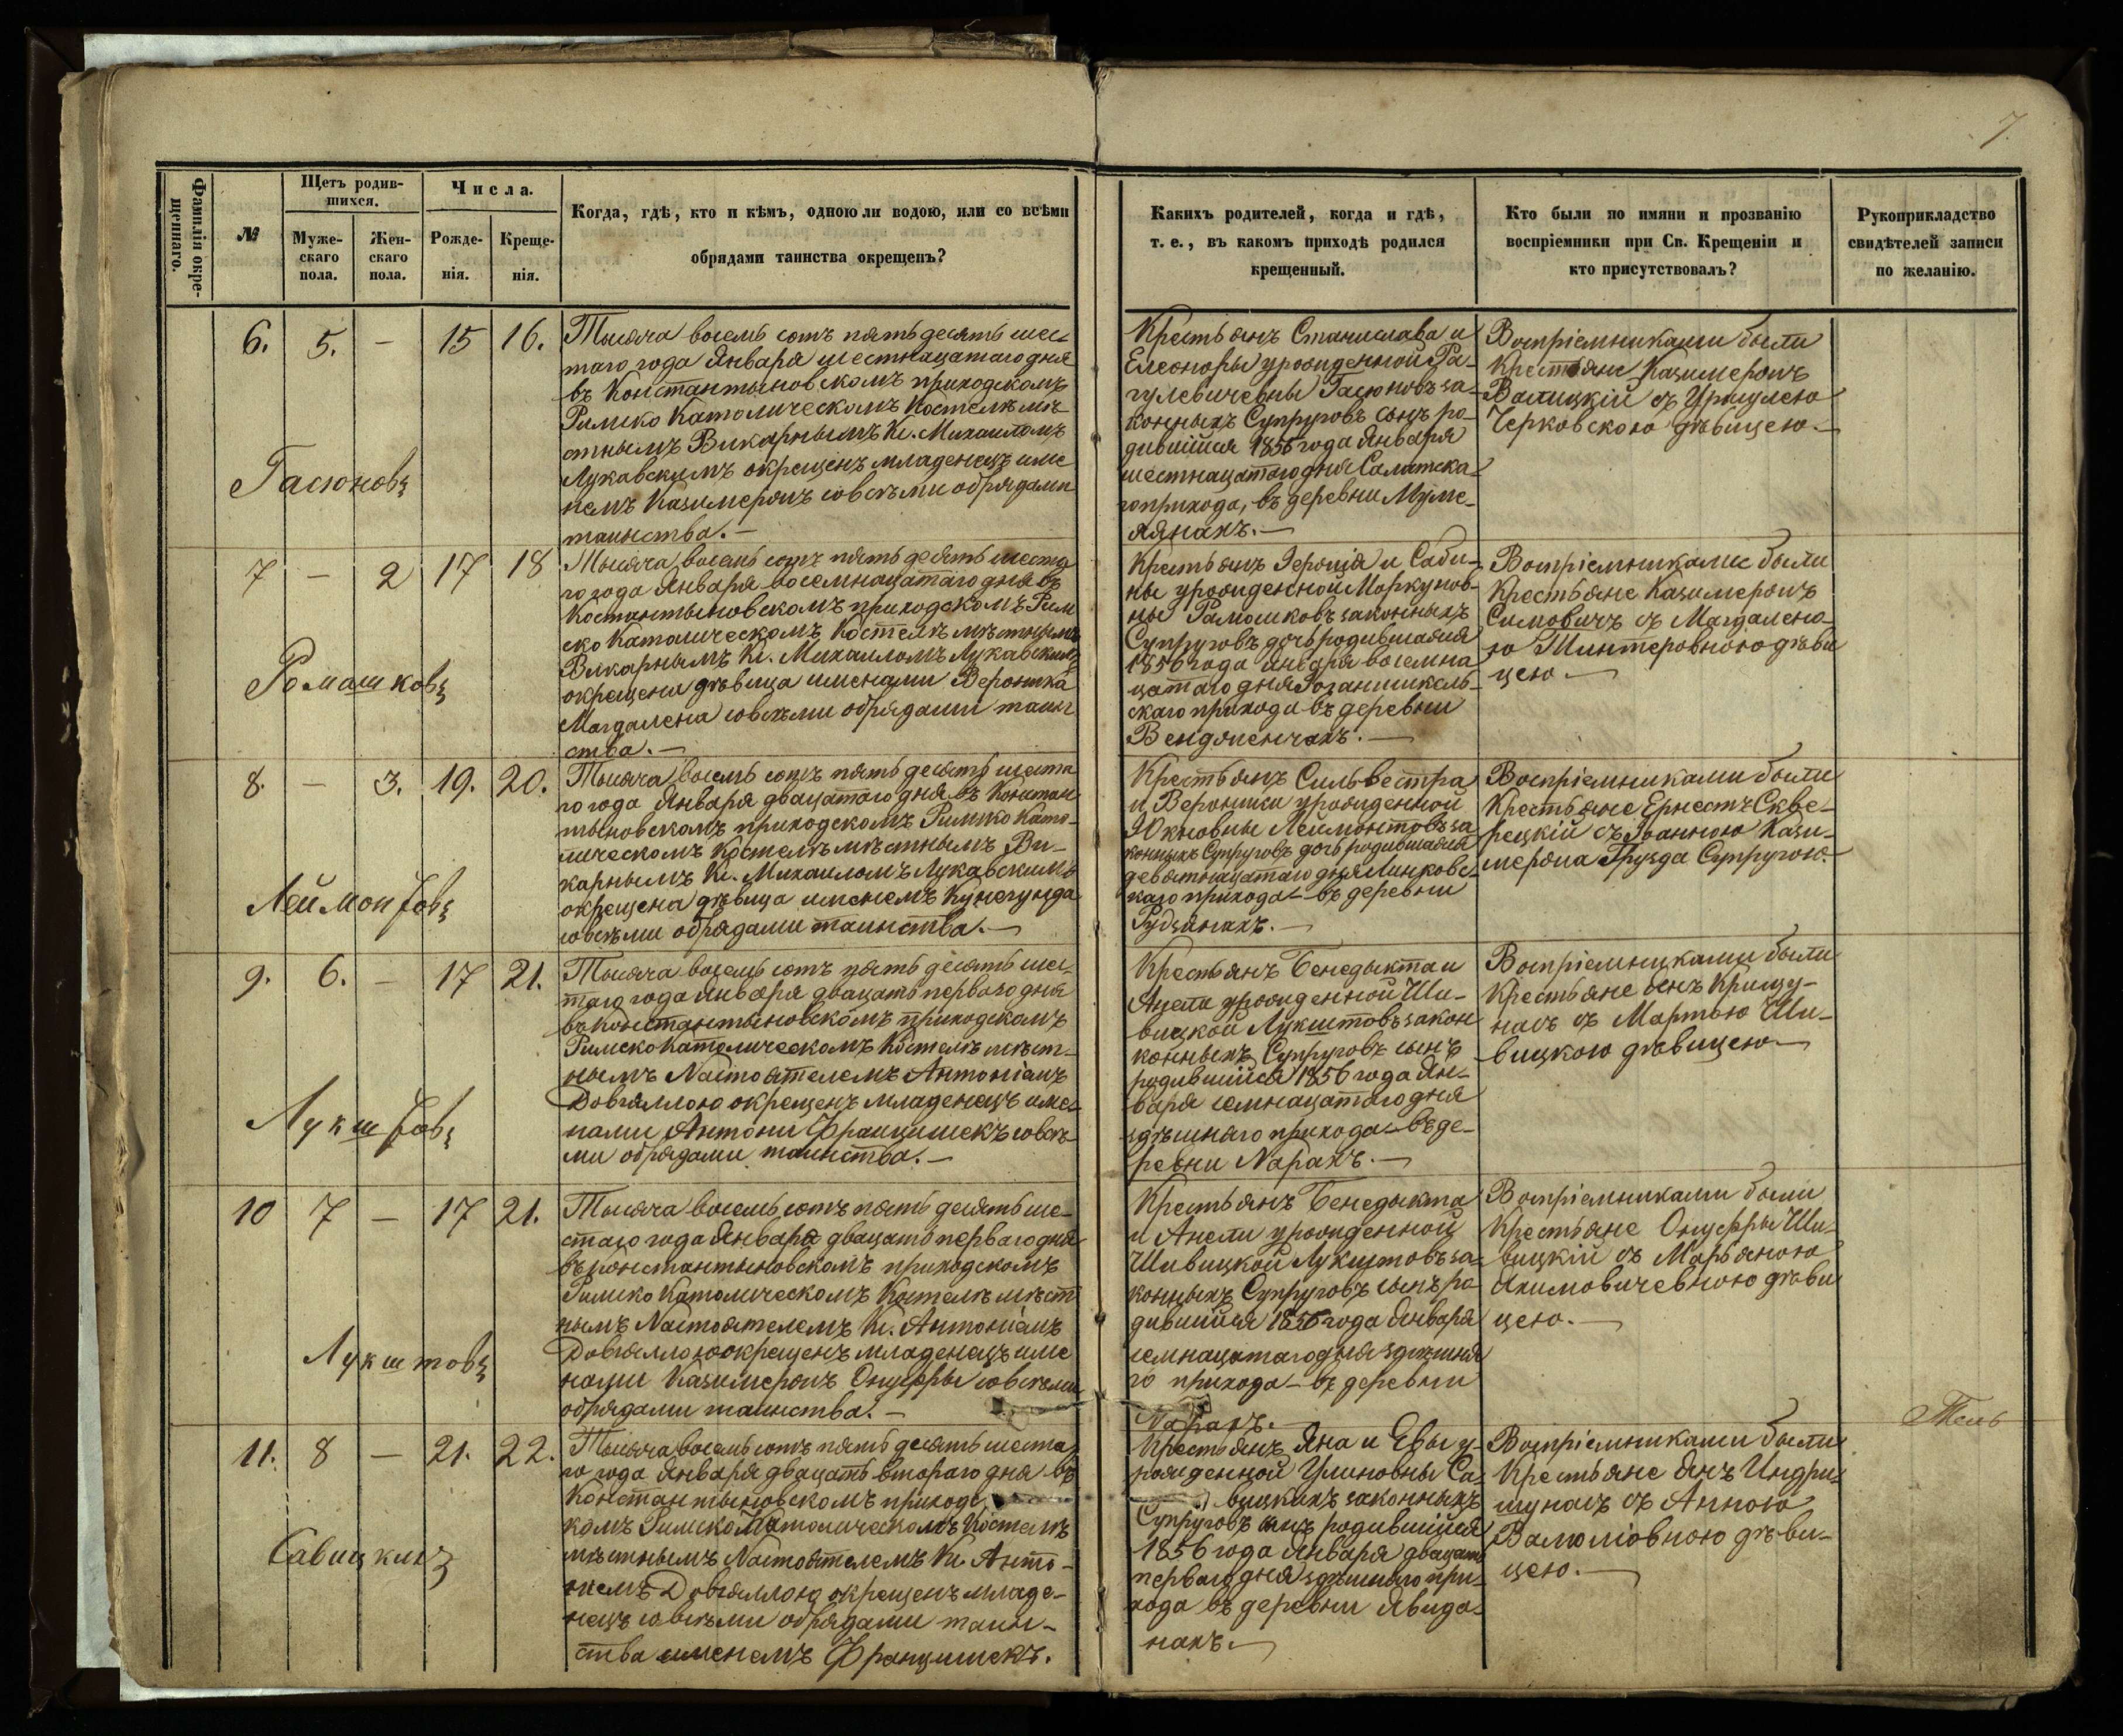 7.
Фамилія окре-
щеннаго.
№
Щетъ родив-
шихся.
Муже-
скаго
пола.
Жен-
скаго
пола.
Числа.
Рожде-
нія.
Креще-
нія.
Когда, гдѣ, кто и кѣмъ, одною ли водою, или со всѣми
обрядами таинства окрещенъ?
Какихъ родителей, когда и гдѣ,
т. е., въ какомъ приходѣ родился
крещенный.
Кто были по имяни и прозванію
воспріемники при Св. Крещеніи и
кто присутствовалъ?
Рукоприкладство
свидѣтелей записи
по желанію.
6. 5. – 15 16.
Гасюновъ
Тысяча восемь сотъ пять десять шес-
таго года Января шестнацатаго дня
въ Константыновскомъ приходскомъ
Римско Католическомъ Костелѣ мѣ-
стнымъ Викарнымъ Кс. Михаиломъ
Лукавскимъ окрещенъ младенецъ име
немъ Казимеромъ совсѣми обрядами
таинства. –
Крестьянъ Станислава и
Елеоноры урожденной Ра-
гулевичевны Гасюновъ за-
конныхъ Супруговъ сынъ ро-
дившійся 1856 года Января
шестнацатаго дня Салатска-
го прихода, въ деревни Муле-
лянахъ. –
Воспріемниками были
Крестьяне Казимеромъ
Валицкій съ Уршулею
Черковскою дѣвицею. –
7 – 2 17 18
Ромашковъ
Тысяча восемь сотъ пять десять шеста
го года Января восемнацатаго дня въ
Костантыновскомъ приходскомъ Рим
ско Католическомъ Костелѣ мѣстнымъ
Викарнымъ Кс. Михаиломъ Лукавскимъ
окрещена дѣвица именами Вероника
Магдалена совсѣми обрядами таинс
ства. –
Крестьянъ Героній и Саби-
ны урожденной Маркунов-
ны Рамошковъ законныхъ
Супруговъ дочь родившаяся
1856 года Января восемна
цатаго дня Іоганишкель-
скаго прихода въ деревни
Вендзенчахъ. –
Воспріемниками были
Крестьяне Казимеромъ
Симовичъ съ Магдалено-
ю Шинтеровною дѣви
цею –
8. – 3. 19. 20.
Леймонтовъ
Тысяча восемь сотъ пять десять шеста
го года Января двацатаго дня въ Констан
тыновскомъ приходскомъ Римско Като-
лическомъ Костелѣ мѣстнымъ Ви-
карнымъ Кс. Михаиломъ Лукавскимъ
окрещена дѣвица именемъ Кунегунда
совсѣми обрядами таинства. –
Крестьянъ Сильвестра
и Вероники урожденной
Юкновны Леймонтовъ за-
конныхъ Супруговъ дочь родившаяся
девятнацатаго дня Линковс-
каго прихода – въ деревни
Рудзянахъ. –
Воспріемниками были
Крестьяне Ернестъ Скве-
рецкій съ Іоанною Кази-
мерона Грузда Супругою. –
9. 6. – 17 21.
Лукштовъ
Тысяча восемь сотъ пять десять шес-
таго года Января двацать перваго дня
въ Константыновскомъ приходскомъ
Римско Католическомъ Костелѣ мѣст-
нымъ Настоятелемъ Антоніемъ
Довгяллою окрещенъ младенецъ име-
нами Антони Францишекъ совсѣ-
ми обрядами таинства. –
Крестьянъ Бенедыкта и
Анели урожденной Ши-
вицкой Лукштовъ закон
конныхъ Супруговъ сынъ
родившійся 1856 года Ян-
варя семнацатаго дня
здѣшняго прихода – въ де-
ревни Нарахъ. –
Воспріемниками были
Крестьяне Янъ Крищу-
насъ съ Мартою Ши-
вицкою дѣвицею –
10 7 – 17 21.
Лукштовъ
Тысяча восемь сотъ пять десять ше-
стаго года Января двацать перваго дня
въ Константыновскомъ приходскомъ
Римско Католическомъ Костелѣ мѣст
нымъ Настоятелемъ Кс. Антоніемъ
Довгяллою окрещенъ младенецъ име
нами Казимеромъ Онуфры совсѣми
обрядами таинства. –
Крестьянъ Бенедыкта
и Анели урожденной
Шивицкой Лукштовъ за-
конныхъ Супруговъ сынъ ро-
дившійся 1856 года Января
семнацатаго дня здѣшня
го прихода – въ деревни
Нарахъ. –
Воспріемниками были
Крестьяне Онуфры Ши-
вицкій съ Марьяною
Якимовичевною дѣви
цею. –
11. 8 – 21. 22.
Савицкихъ
Тысяча восемь сотъ пять десять шеста
го года Января двацать втораго дня въ
Константыновскомъ приходс
комъ Римско Католическомъ Костелѣ
мѣстнымъ Настоятелемъ Кс. Анто-
ніемъ Довгяллою окрещенъ младе-
нецъ совсѣми обрядами таин-
ства именемъ Францишекъ.
Крестьянъ Яна и Евы у-
рожденной Улиновны Са-
вицкихъ законныхъ
Супруговъ сынъ родившійся
1856 года Января двацать
перваго дня здѣшняго при-
хода въ деревни Явида-
нахъ. –
Воспріемниками были
Крестьяне Янъ Индри-
шунасъ съ Анною
Валюліовною дѣви-
цею. –